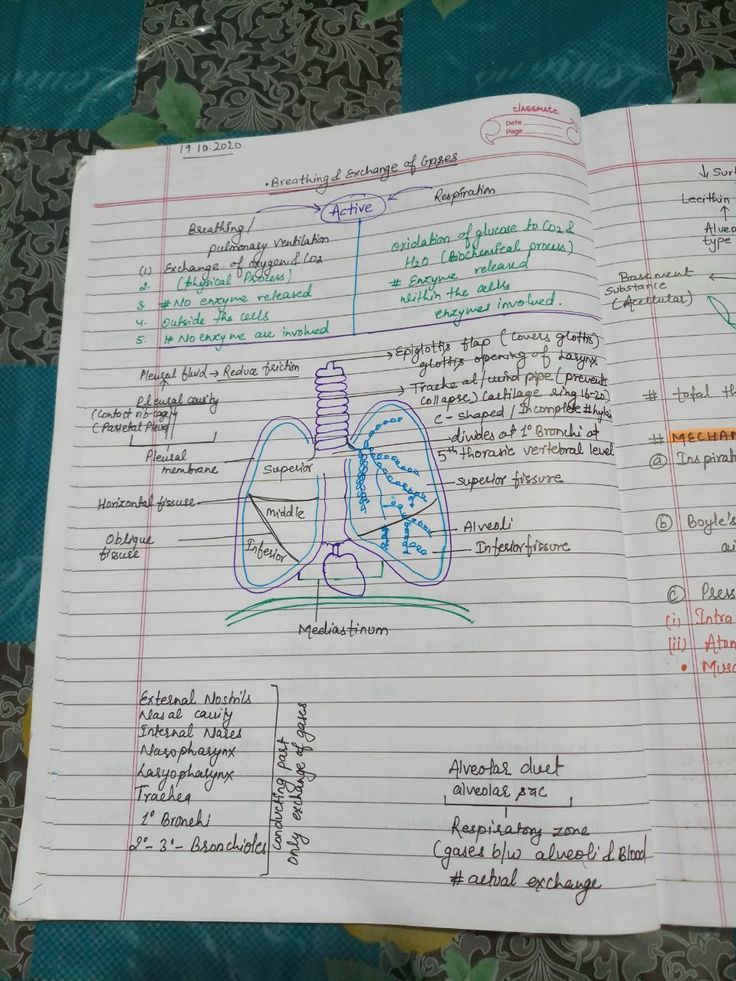 classmate
Date
Page
19.10.2020
• Breathing & Exchange of Gases
Active
Breathing/
pulmonary ventilation
(1) Exchange of oxygen & CO2
2. (physical Process)
3. # No enzyme released
4. outside the cells
5. # No enzyme are involved
Respiration
oxidation of glucose to CO2 &
H2O (Biochemical process)
# Enzyme released
within the cells
enzymes involved.
Pleural fluid → Reduce friction
Pleural cavity
(Contact rib-cage)
(Parietal Pleura)
Pleural
membrane
Horizontal fissure
Oblique
fissure
Superior
middle
Inferior
Epiglottis flap (covers glottis)
glottis opening of Larynx
Tracheal/wind pipe (prevent
collapse) (cartilage ring 16-20)
C-shaped/Incomplete # hyline
divides at 1° Bronchi at
5th thoraric vertebral level
superior fissure
Alveoli
Inferior fissure
Mediastinum
External Nostrils
Nasal cavity
Internal Nares
Nasopharynx
Laryopharynx
Trachea
1° Bronchi
2°- 3°- Bronchioles
conducting part
only exchange of gases
Alveolar duct
alveolar sac
Respiratory zone
(gases b/w alveoli & Blood
# actual exchange
↓ Sur
Lecithin
↑
Alveo
type
Basement
substance
(Acellular)
# total th
# MECHAN
(a) Inspirat
(b) Boyle's
(c) Press
(i) Intra
(ii) Atm
• Musc